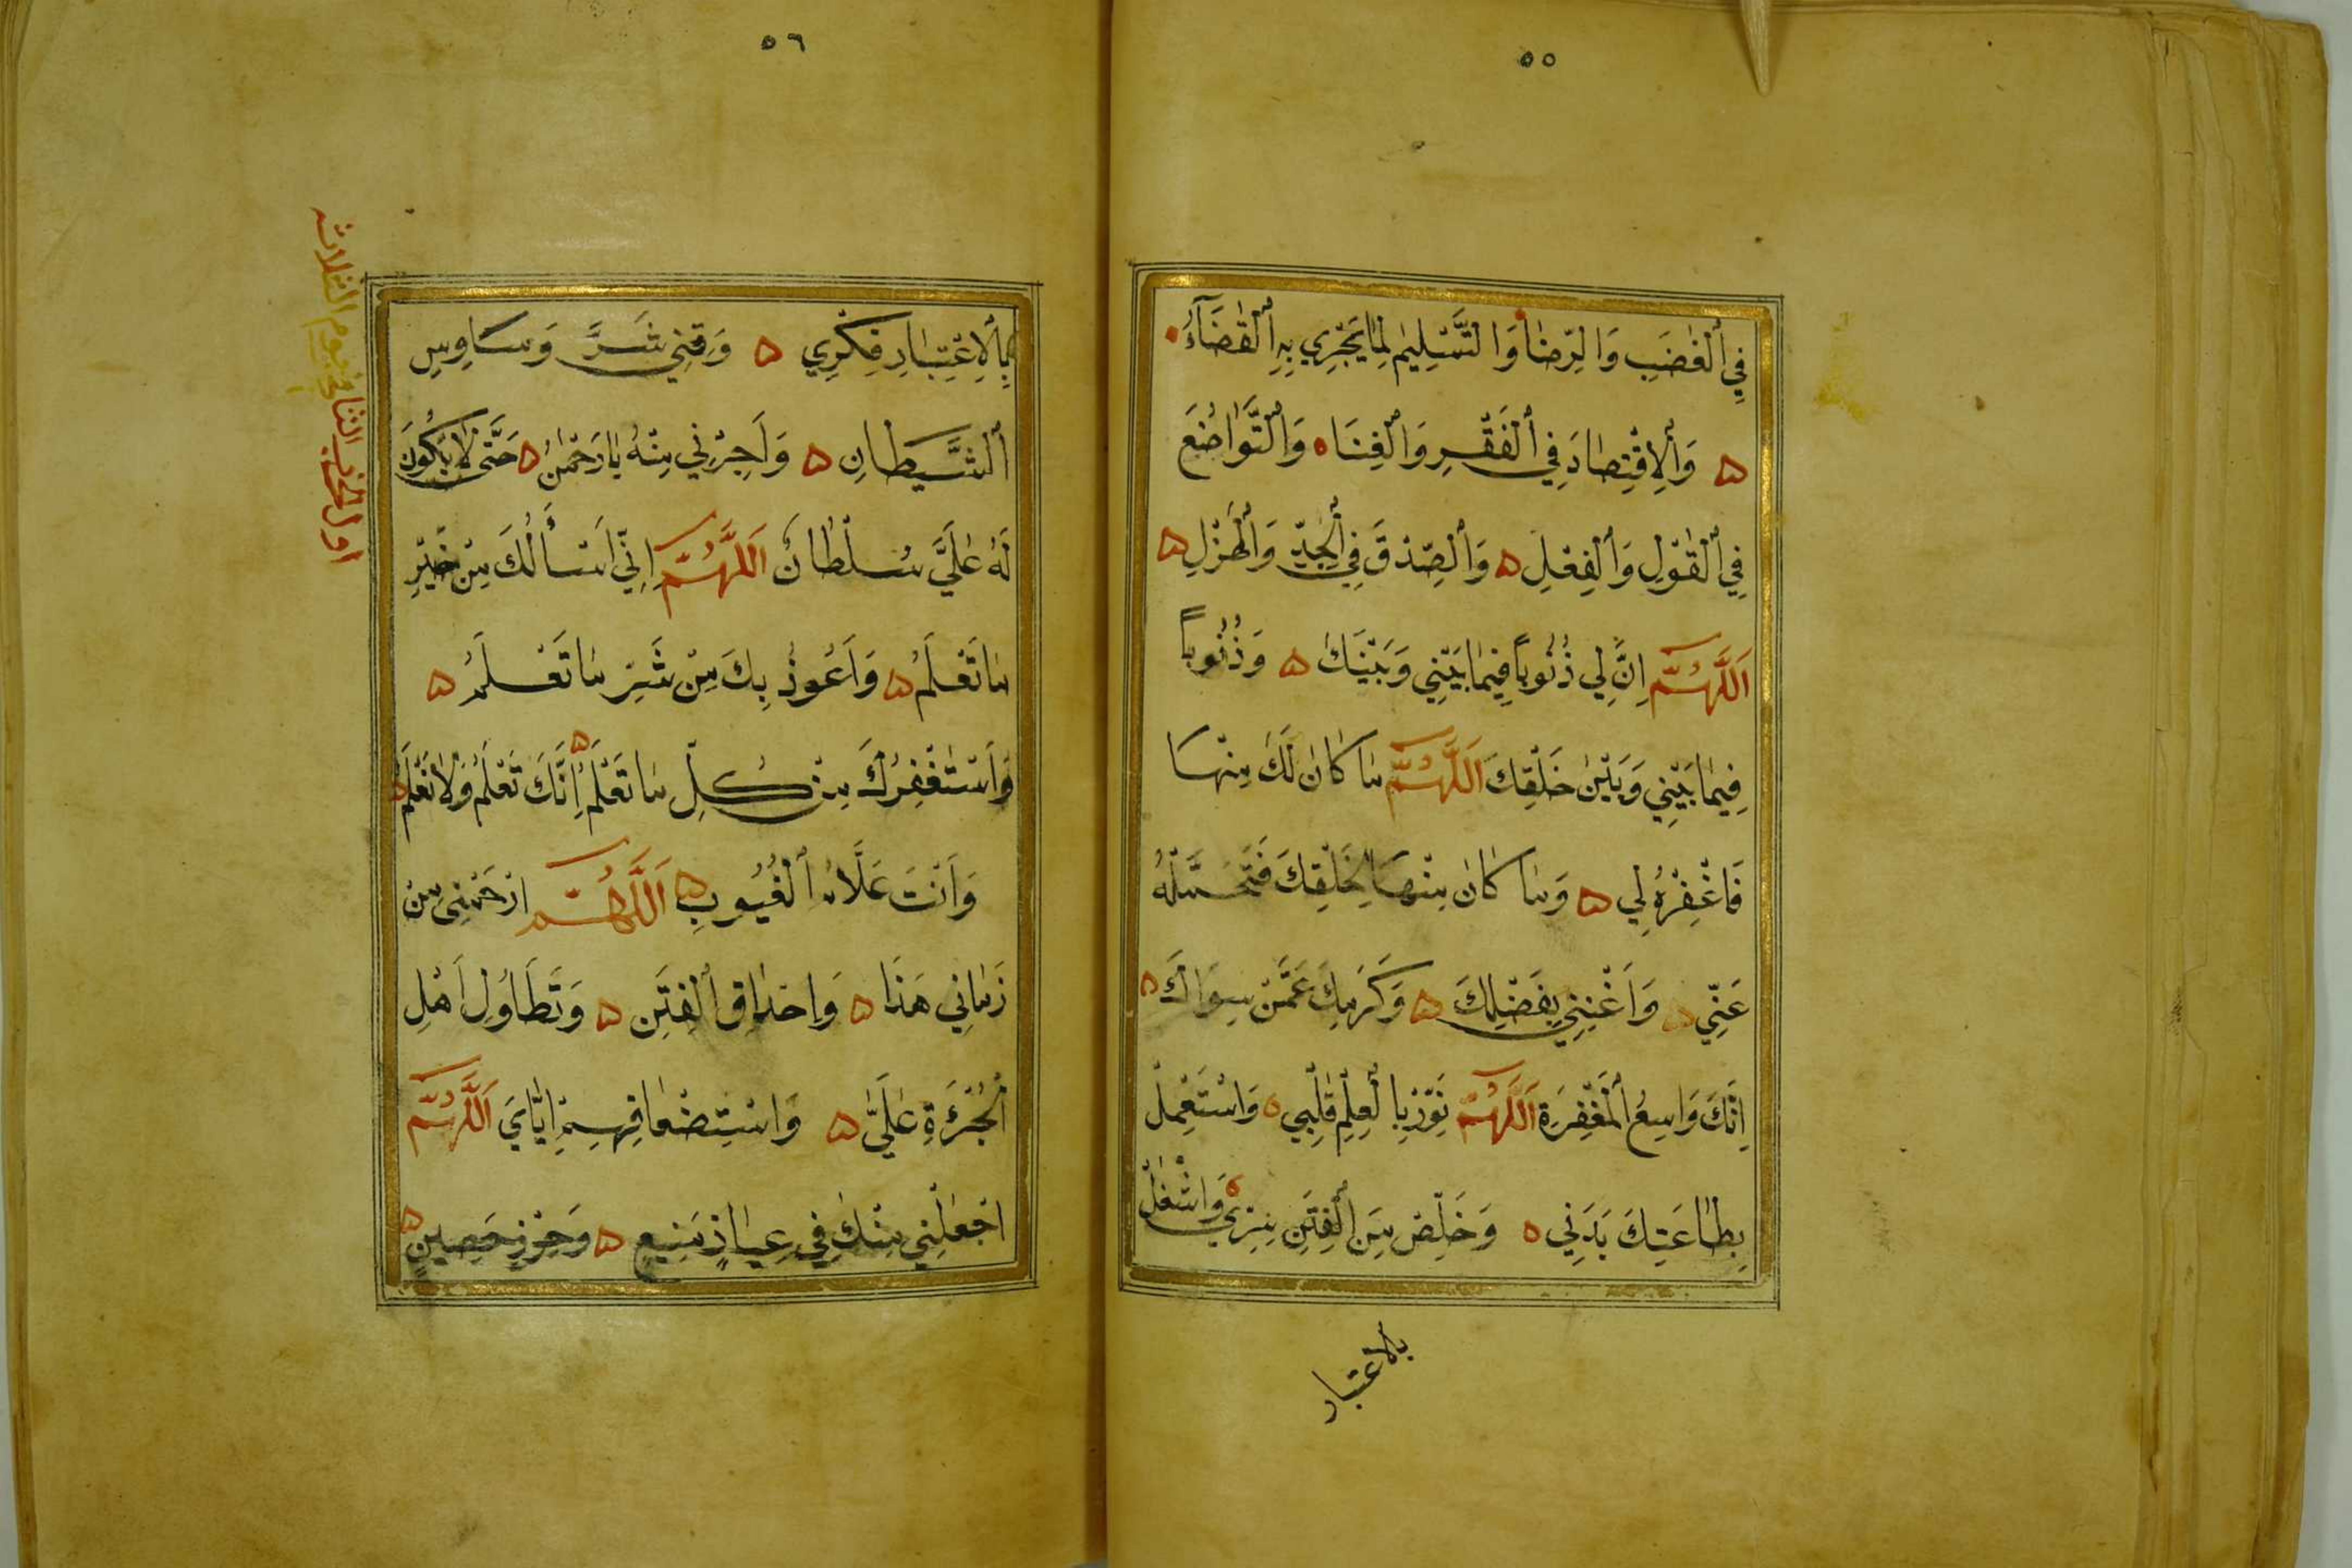 ٥٥
فِي ٱلْغَضَبِ وَالرِّضَا وَالتَّسْلِيمِ لِمَا يَجْرِي بِهِ ٱلْقَضَآءُ
وَٱلْاِقْتِصَادَ فِي ٱلْفَقْرِ وَٱلْغِنَا وَٱلتَّوَاضُعَ
فِي ٱلْقَوْلِ وَٱلْفِعْلِ وَٱلصِّدْقَ فِي ٱلْجِدِّ وَٱلْهَزْلِ
اَللّٰهُمَّ اِنَّ لِي ذُنُوباً فِيمَا بَيْنِي وَبَيْنَكَ وَذُنُوباً
فِيمَا بَيْنِي وَبَيْنَ خَلْقِكَ اَللّٰهُمَّ مَا كَانَ لَكَ مِنْهَا
فَاغْفِرْهُ لِي وَمَا كَانَ مِنْهَا لِخَلْقِكَ فَتَحَمَّلْهُ
عَنِّي وَاَغْنِنِي بِفَضْلِكَ وَكَرَمِكَ عَمَّنْ سِوَاكَ
اِنَّكَ وَاسِعُ ٱلْمَغْفِرَةِ اَللّٰهُمَّ نَوِّرْ بِالْعِلْمِ قَلْبِي وَاسْتَعْمِلْ
بِطَاعَتِكَ بَدَنِي وَخَلِّصْ مِنَ ٱلْفِتَنِ سِرِّي وَاشْغَلْ
بالاعتبار
٥٦
بِٱلْاِعْتِبَارِ فِكْرِي وَقِنِي شَرَّ وَسَاوِسِ
ٱلشَّيْطَانِ وَاَجِرْنِي مِنْهُ يَا رَحْمٰنُ حَتَّى لَا يَكُونَ
لَهُ عَلَيَّ سُلْطَانٌ اَللّٰهُمَّ اِنِّي اَسْأَلُكَ مِنْ خَيْرِ
مَا تَعْلَمُ وَاَعُوذُ بِكَ مِنْ شَرِّ مَا تَعْلَمُ
وَاَسْتَغْفِرُكَ مِنْ كُلِّ مَا تَعْلَمُ اِنَّكَ تَعْلَمُ وَلَا نَعْلَمُ
وَاَنْتَ عَلَّامُ ٱلْغُيُوبِ اَللّٰهُمَّ ارْحَمْنِي مِنْ
زَمَانِي هٰذَا وَاِحْدَاقِ ٱلْفِتَنِ وَتَطَاوُلِ اَهْلِ
ٱلْجُرْءَةِ عَلَيَّ وَاسْتِضْعَافِهِمْ اِيَّايَ اَللّٰهُمَّ
اجْعَلْنِي مِنْكَ فِي عِيَاذٍ مَنِيعٍ وَحِرْزٍ حَصِينٍ
اول الحزب الثاني في يوم الثلاث